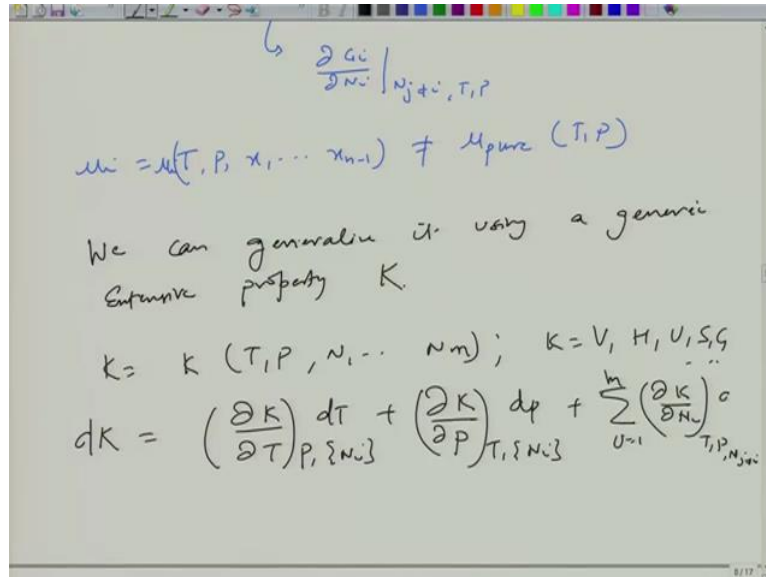 ↳ ∂Gi/∂Ni |Nj≠i, T, P
μi = μi(T, P, x1, ... xn-1) ≠ μpure (T, P)
We can generalize it using a generic
Extensive property K.
K = K (T, P, N1 .. Nm) ; K = V, H, U, S, G
dK = (∂K/∂T)P,{Ni} dT + (∂K/∂P)T,{Ni} dp + Σ i=1 m (∂K/∂Ni)T,P,Nj≠i
8/17